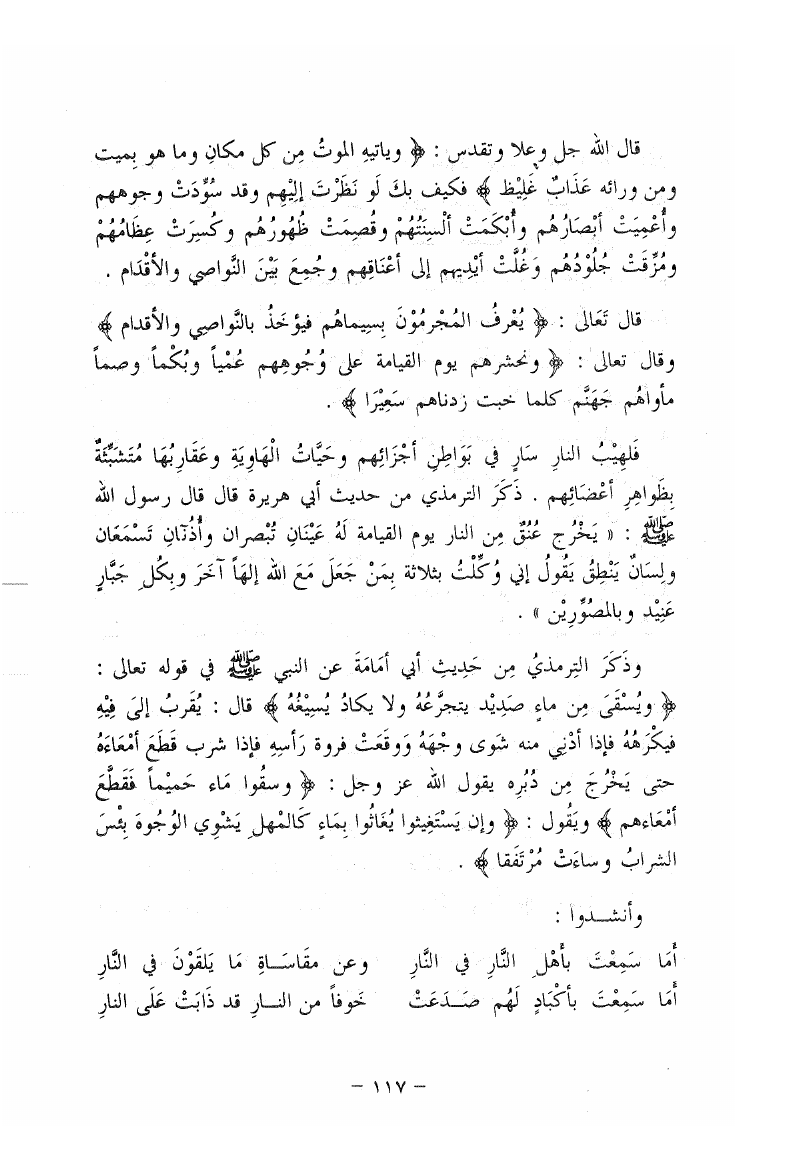 قال الله جل وعلا وتقدس : ﴿ وياتيهِ الموتُ مِن كل مكانِ وما هو بِميت
ومن ورائه عَذَابٌ غَلِيْظ ﴾ فكيف بكَ لَو نَظَرْتَ إليْهِم وقد سُوِّدَتْ وجوههم
وأُعْمِيَتْ أبْصَارُهُم وأُبْكَمَتْ ألْسِنَتُهُمْ وقُصِمَتْ ظُهُورُهُم وكُسِرَتْ عِظَامُهُمْ
ومُزِّقَتْ جُلُودُهُم وَغُلَّتْ أيْدِيهم إلى أعْنَاقِهم وجُمِعَ بَيْنَ النَّواصي والأقْدَام .
قال تَعَالى : ﴿ يُعْرفُ المُجْرمُوْنَ بِسِيماهُم فيؤخَذُ بالنَّواصِي والأقدام ﴾
وقال تعالى : ﴿ ونحشرهم يوم القيامة على وُجُوهِهم عُمْياً وبُكْماً وصماً
مأواهُم جَهَنَّم كلما خبت زدناهم سَعِيْرَا ﴾ .
فَلهِيْبُ النارِ سَارٍ في بَوَاطِنِ أجْزَائِهم وحَيَّاتُ الْهَاوِيَةِ وعَقَارِبُهَا مُتَشَبِّثَةٌ
بِظَواهِرِ أعْضَائِهم . ذَكَرَ الترمذي من حديث أبي هريرة قال قال رسول الله
ﷺ : « يَخْرُج عُنُقٌ مِن النار يوم القيامة لَهُ عَيْنَانِ تُبْصران وأُذُنَانِ تَسْمَعَان
ولِسَانٌ يَنْطِقُ يَقُولُ إني وُكِّلْتُ بثلاثة بِمَنْ جَعَلَ مَعَ الله إلهَاً آخَرَ وبِكُلِ جَبَّارٍ
عَنِيْد وبالمصُوِّرِيْن » .
وذَكَرَ التِرمذيُ مِن حَدِيثِ أبي أمَامَةَ عن النبي ﷺ في قوله تعالى :
﴿ ويُسْقَىَ مِن ماءٍ صَدِيْد يتجرَّعُهُ ولا يكادُ يُسِيْغُهُ ﴾ قال : يُقَربُ إلىَ فِيْهِ
فيكْرَهُهُ فإذا أدْنِي منه شَوى وجْهَهُ وَوقَعَتْ فروة رَأسِهِ فإذا شرب قَطَعَ أمْعَاءَهُ
حتى يَخْرُجَ مِن دُبُرِه يقول الله عز وجل : ﴿ وسقُوا مَاء حَمِيْماً فَقَطَّعَ
أمْعَاءهم ﴾ ويَقُول : ﴿ وإن يَسْتَغِيثوا يُغَاثُوا بِمَاءٍ كَالمْهلِ يَشْوِي الوُجُوهَ بِئْسَ
الشرابُ وساءَتْ مُرْتَفَقا ﴾ .
وأنشدوا :
أَمَا سَمِعْتَ بأَهْلِ النَّارِ في النَّارِ وعن مقَاسَاةِ مَا يَلقَوْنَ في النَّارِ
أَمَا سَمِعْتَ بأكْبَادٍ لَهُم صَدَعَتْ خَوفاً من النارِ قد ذَابَتْ عَلَى النارِ
– ١١٧ –